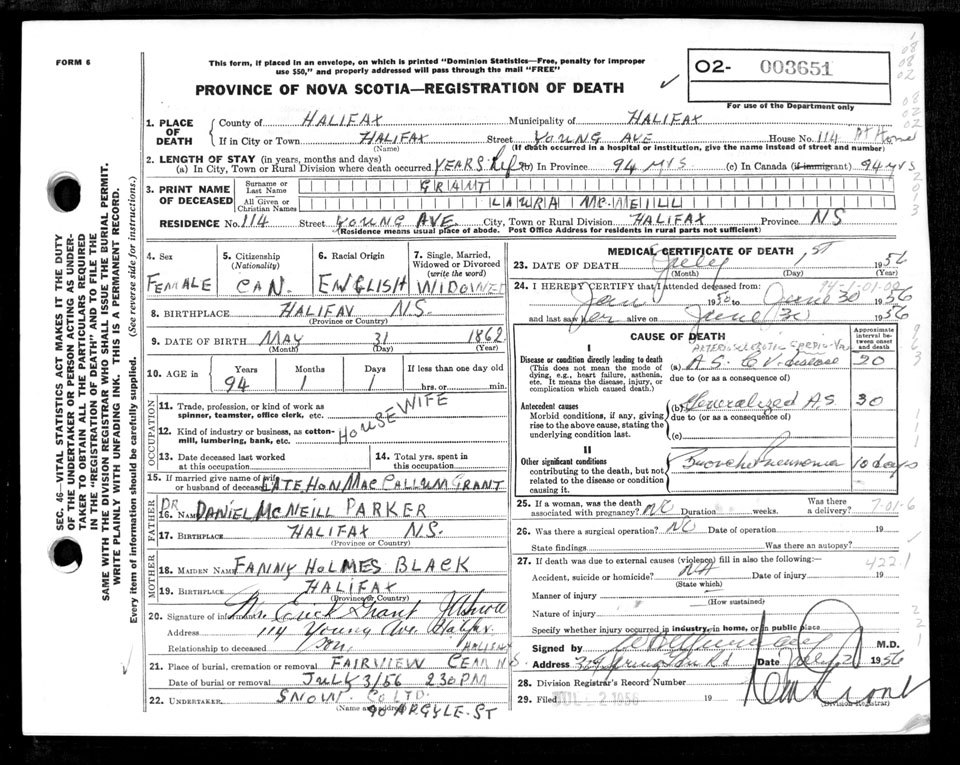 FORM 6
This form, if placed in an envelope, on which is printed "Dominion Statistics—Free, penalty for improper
use $50," and properly addressed will pass through the mail "FREE"
PROVINCE OF NOVA SCOTIA—REGISTRATION OF DEATH
02- 003651
For use of the Department only
1. PLACE OF DEATH
County of HALIFAX Municipality of HALIFAX
If in City or Town HALIFAX Street YOUNG AVE House No. 114 At Home
(Name) (If death occurred in a hospital or institution, give the name instead of street and number)
2. LENGTH OF STAY (in years, months and days)
(a) In City, Town or Rural Division where death occurred YEARS (b) In Province 94 yrs (c) In Canada (if immigrant) 94 yrs
3. PRINT NAME OF DECEASED
Surname or Last Name GRANT
All Given or Christian Names LAURA McNEILL
RESIDENCE No. 114 Street YOUNG AVE City, Town or Rural Division HALIFAX Province N.S
(Residence means usual place of abode. Post Office Address for residents in rural parts not sufficient)
4. Sex FEMALE
5. Citizenship (Nationality) CAN.
6. Racial Origin ENGLISH
7. Single, Married, Widowed or Divorced (write the word) WIDOWED
8. BIRTHPLACE HALIFAX N.S.
(Province or Country)
9. DATE OF BIRTH MAY 31 1862
(Month) (Day) (Year)
10. AGE Years 94 Months 1 Days 1 If less than one day old
hrs. or min.
OCCUPATION
11. Trade, profession, or kind of work as spinner, teamster, office clerk, etc. HOUSEWIFE
12. Kind of industry or business, as cotton-mill, lumbering, bank, etc.
13. Date deceased last worked at this occupation
14. Total yrs. spent in this occupation
15. If married give name of wife or husband of deceased LATE HON. MacCALLUM GRANT
FATHER
16. Name DR DANIEL McNEILL PARKER
17. BIRTHPLACE HALIFAX N.S.
(Province or Country)
MOTHER
18. MAIDEN NAME FANNY HOLMES BLACK
19. BIRTHPLACE HALIFAX
(Province or Country)
20. Signature of informant Eric Grant
Address 114 Young Ave Halifax
Relationship to deceased Son
21. Place of burial, cremation or removal FAIRVIEW CEM HALIFAX N.S.
Date of burial or removal JULY 3/56 230PM
22. UNDERTAKER SNOW CO LTD.
(Name and address) 90 ARGYLE ST
MEDICAL CERTIFICATE OF DEATH
23. DATE OF DEATH July 1st 1956
(Month) (Day) (Year)
24. I HEREBY CERTIFY that I attended deceased from:
Jan 1950 to June 30 1956
and last saw her alive on June 30 1956
CAUSE OF DEATH
Approximate interval between onset and death
I
Disease or condition directly leading to death
(This does not mean the mode of dying, e.g., heart failure, asthenia, etc. It means the disease, injury, or complication which caused death.)
(a) A.S. C.V. disease 20
due to (or as a consequence of)
Antecedent causes
Morbid conditions, if any, giving rise to the above cause, stating the underlying condition last.
(b) Generalized A.S. 30
due to (or as a consequence of)
(c)
II
Other significant conditions
contributing to the death, but not related to the disease or condition causing it.
Bronchopneumonia 10 days
25. If a woman, was the death associated with pregnancy? NO Duration weeks. Was there a delivery? 7-01-6
26. Was there a surgical operation? NO Date of operation 19
State findings Was there an autopsy?
27. If death was due to external causes (violence) fill in also the following:— 422.1
Accident, suicide or homicide? NA Date of injury 19
(State which)
Manner of injury
(How sustained)
Nature of injury
Specify whether injury occurred in industry, in home, or in public place
Signed by M.D.
Address Date July 2 1956
28. Division Registrar's Record Number
29. Filed JUL 2 1956 19
(Division Registrar)
SEC. 46—VITAL STATISTICS ACT MAKES IT THE DUTY
OF THE UNDERTAKER OR PERSON ACTING AS UNDER-
TAKER TO OBTAIN ALL THE PARTICULARS REQUIRED
IN THE "REGISTRATION OF DEATH" AND TO FILE THE
SAME WITH THE DIVISION REGISTRAR WHO SHALL ISSUE THE BURIAL PERMIT.
WRITE PLAINLY WITH UNFADING INK. THIS IS A PERMANENT RECORD.
Every item of information should be carefully supplied. (See reverse side for instructions.)